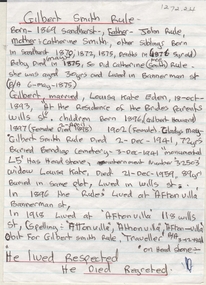 Gilbert Smith Rule.
Born - 1869 Sandhurst; Father - John Rule,
Mother: Catherine Smith, other siblings Born
in Sandhurst 1870, 1872, 1875, Deaths in 1875
Baby Died in 1875, So did Catherine (Smith) Rule.
She was aged 30yrs and Lived in Bannerman st
(B/A 6-may-1875)
Gilbert, married, Louisa Kate Eden, 18-oct-
1893, At the Residence of the Brides Parents
Wills st. children Born 1896 (Gilbert Howard)
1897 (Female Died) 1902 (Female) Gladys May
Gilbert Smith Rule Died 2-Dec-1941, 72yrs
Buried Bendigo Cemetery, 3-Dec-1941 monumental
L5 Has Head stone, Number 32503
widow Louisa Kate, Died 21-Dec-1959, 89yrs
buried in same plot, Lived in Wills st.
In 1896 the Rules' Lived at Afton ville
Bannerman st,
In 1918 Lived at "Aftonville" 118 wills
st, (Spelling: Attonville, Althonville, Afton-ville)
Obit For Gilbert Smith Rule, Traveller
on Head stone
He lived Respected
He Died Regretted.